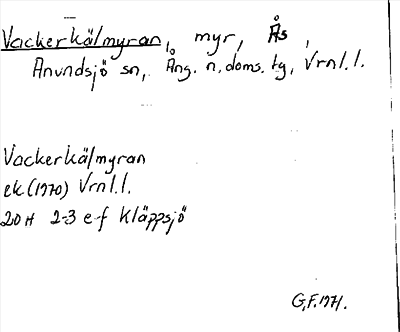 Vackerkälmyran, myr, Ås,
Anundsjö sn, Ång. n. doms. tg, Vrnl.l.
Vackerkälmyran
ek (1970) Vrnl.l.
20H 2-3 e-f Kläppsjö
G.F. 1971.